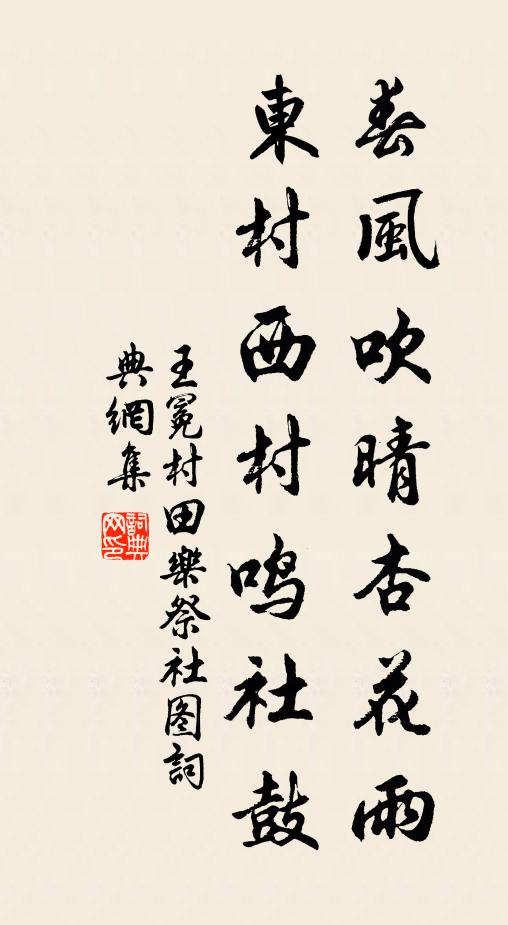 春風吹晴杏花雨
東村西村鸣社鼓
王冕村田樂祭社图詞
典網集
詞典网印